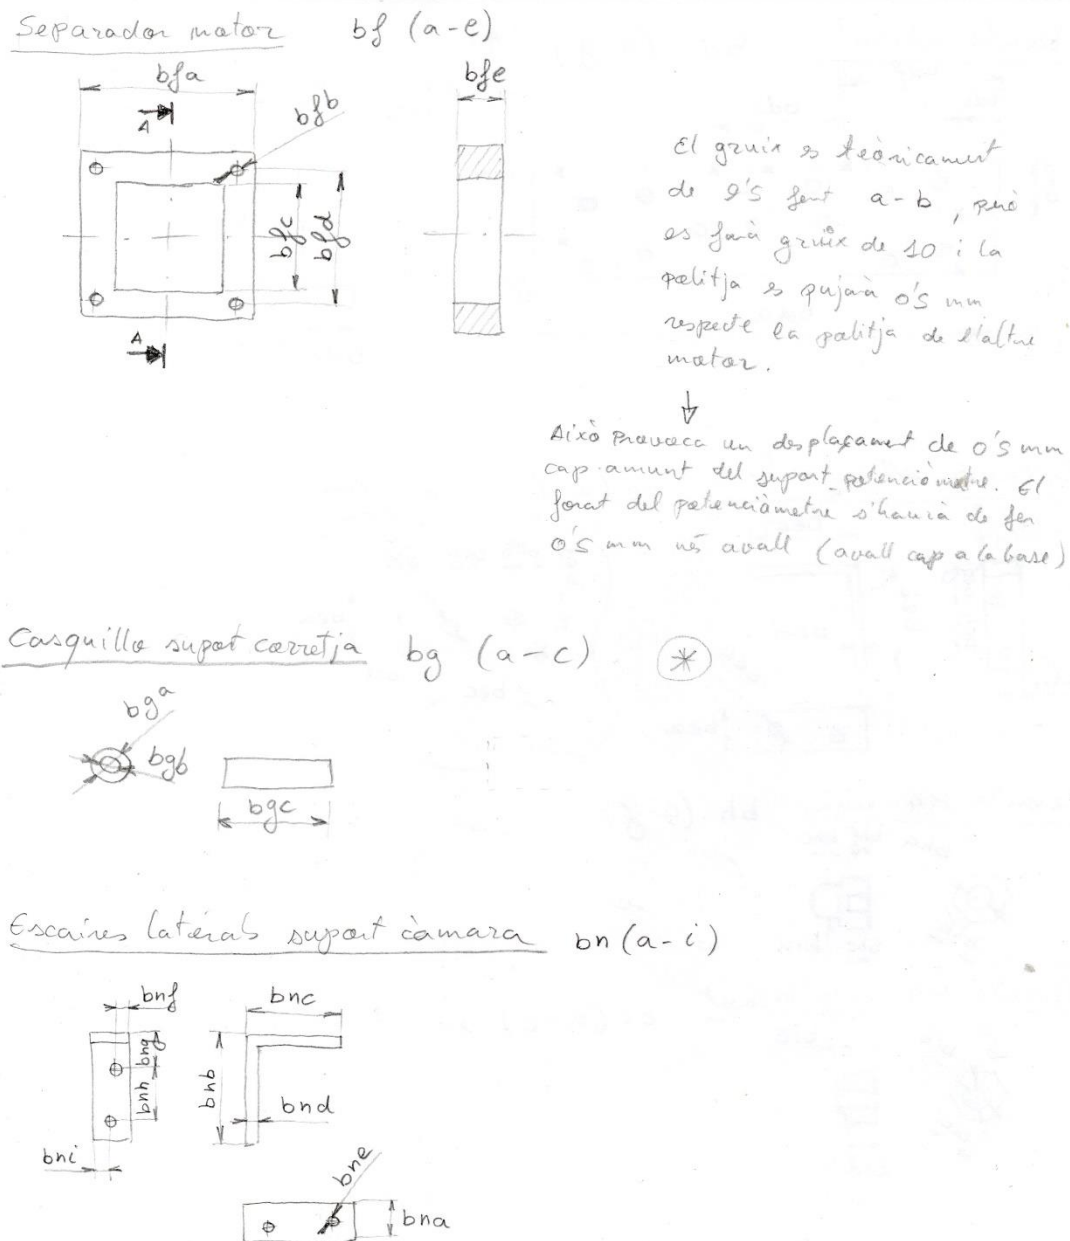 Separador motor bf (a-e)
bfa
bfb
bfc
bfd
A
A
bfe
El gruix es teòricament
de 9's fent a-b, però
es farà gruix de 10 i la
politja es pujarà 0's mm
respecte la politja de l'altre
motor.
Això provoca un desplaçament de 0's mm
cap amunt del suport potenciòmetre. El
forat del potenciòmetre s'haurà de fer
0's mm més avall (avall cap a la base)
Casquillo suport corretja bg (a-c) *
bga
bgb
bgc
Escaires laterals suport càmara bn (a-i)
bnf
bng
bnh
bni
bnc
bnb
bnd
bne
bna